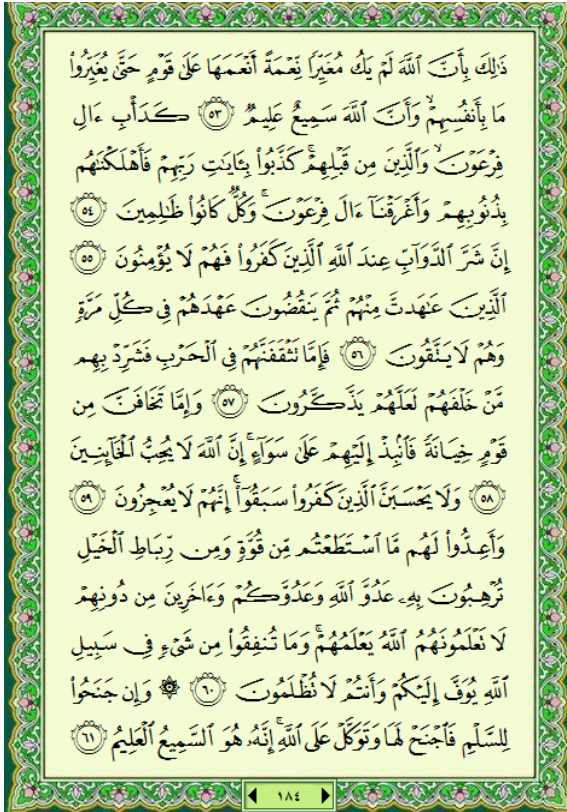 ذَٰلِكَ بِأَنَّ ٱللَّهَ لَمْ يَكُ مُغَيِّرًا نِّعْمَةً أَنْعَمَهَا عَلَىٰ قَوْمٍ حَتَّىٰ يُغَيِّرُوا۟
مَا بِأَنفُسِهِمْ ۙ وَأَنَّ ٱللَّهَ سَمِيعٌ عَلِيمٌ ﴿٥٣﴾ كَدَأْبِ ءَالِ
فِرْعَوْنَ ۙ وَٱلَّذِينَ مِن قَبْلِهِمْ ۚ كَذَّبُوا۟ بِـَٔايَـٰتِ رَبِّهِمْ فَأَهْلَكْنَـٰهُم
بِذُنُوبِهِمْ وَأَغْرَقْنَآ ءَالَ فِرْعَوْنَ ۚ وَكُلٌّ كَانُوا۟ ظَـٰلِمِينَ ﴿٥٤﴾
إِنَّ شَرَّ ٱلدَّوَآبِّ عِندَ ٱللَّهِ ٱلَّذِينَ كَفَرُوا۟ فَهُمْ لَا يُؤْمِنُونَ ﴿٥٥﴾
ٱلَّذِينَ عَـٰهَدتَّ مِنْهُمْ ثُمَّ يَنقُضُونَ عَهْدَهُمْ فِى كُلِّ مَرَّةٍ
وَهُمْ لَا يَتَّقُونَ ﴿٥٦﴾ فَإِمَّا تَثْقَفَنَّهُمْ فِى ٱلْحَرْبِ فَشَرِّدْ بِهِم
مَّنْ خَلْفَهُمْ لَعَلَّهُمْ يَذَّكَّرُونَ ﴿٥٧﴾ وَإِمَّا تَخَافَنَّ مِن
قَوْمٍ خِيَانَةً فَٱنۢبِذْ إِلَيْهِمْ عَلَىٰ سَوَآءٍ ۚ إِنَّ ٱللَّهَ لَا يُحِبُّ ٱلْخَآئِنِينَ
﴿٥٨﴾ وَلَا يَحْسَبَنَّ ٱلَّذِينَ كَفَرُوا۟ سَبَقُوٓا۟ ۚ إِنَّهُمْ لَا يُعْجِزُونَ ﴿٥٩﴾
وَأَعِدُّوا۟ لَهُم مَّا ٱسْتَطَعْتُم مِّن قُوَّةٍ وَمِن رِّبَاطِ ٱلْخَيْلِ
تُرْهِبُونَ بِهِۦ عَدُوَّ ٱللَّهِ وَعَدُوَّكُمْ وَءَاخَرِينَ مِن دُونِهِمْ
لَا تَعْلَمُونَهُمُ ٱللَّهُ يَعْلَمُهُمْ ۚ وَمَا تُنفِقُوا۟ مِن شَىْءٍ فِى سَبِيلِ
ٱللَّهِ يُوَفَّ إِلَيْكُمْ وَأَنتُمْ لَا تُظْلَمُونَ ﴿٦٠﴾ ۞ وَإِن جَنَحُوا۟
لِلسَّلْمِ فَٱجْنَحْ لَهَا وَتَوَكَّلْ عَلَى ٱللَّهِ ۚ إِنَّهُۥ هُوَ ٱلسَّمِيعُ ٱلْعَلِيمُ ﴿٦١﴾
١٨٤